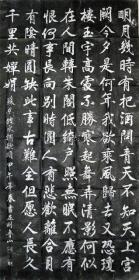 明月幾時有把酒問青天不知天上宮
闕今夕是何年我欲乘風歸去又恐瓊
樓玉宇高處不勝寒起舞弄清影何似
在人間轉朱閣低綺戶照無眠不應有
恨何事長向別時圓人有悲歡離合月
有陰晴圓缺此事古難全但願人長久
千里共嬋娟